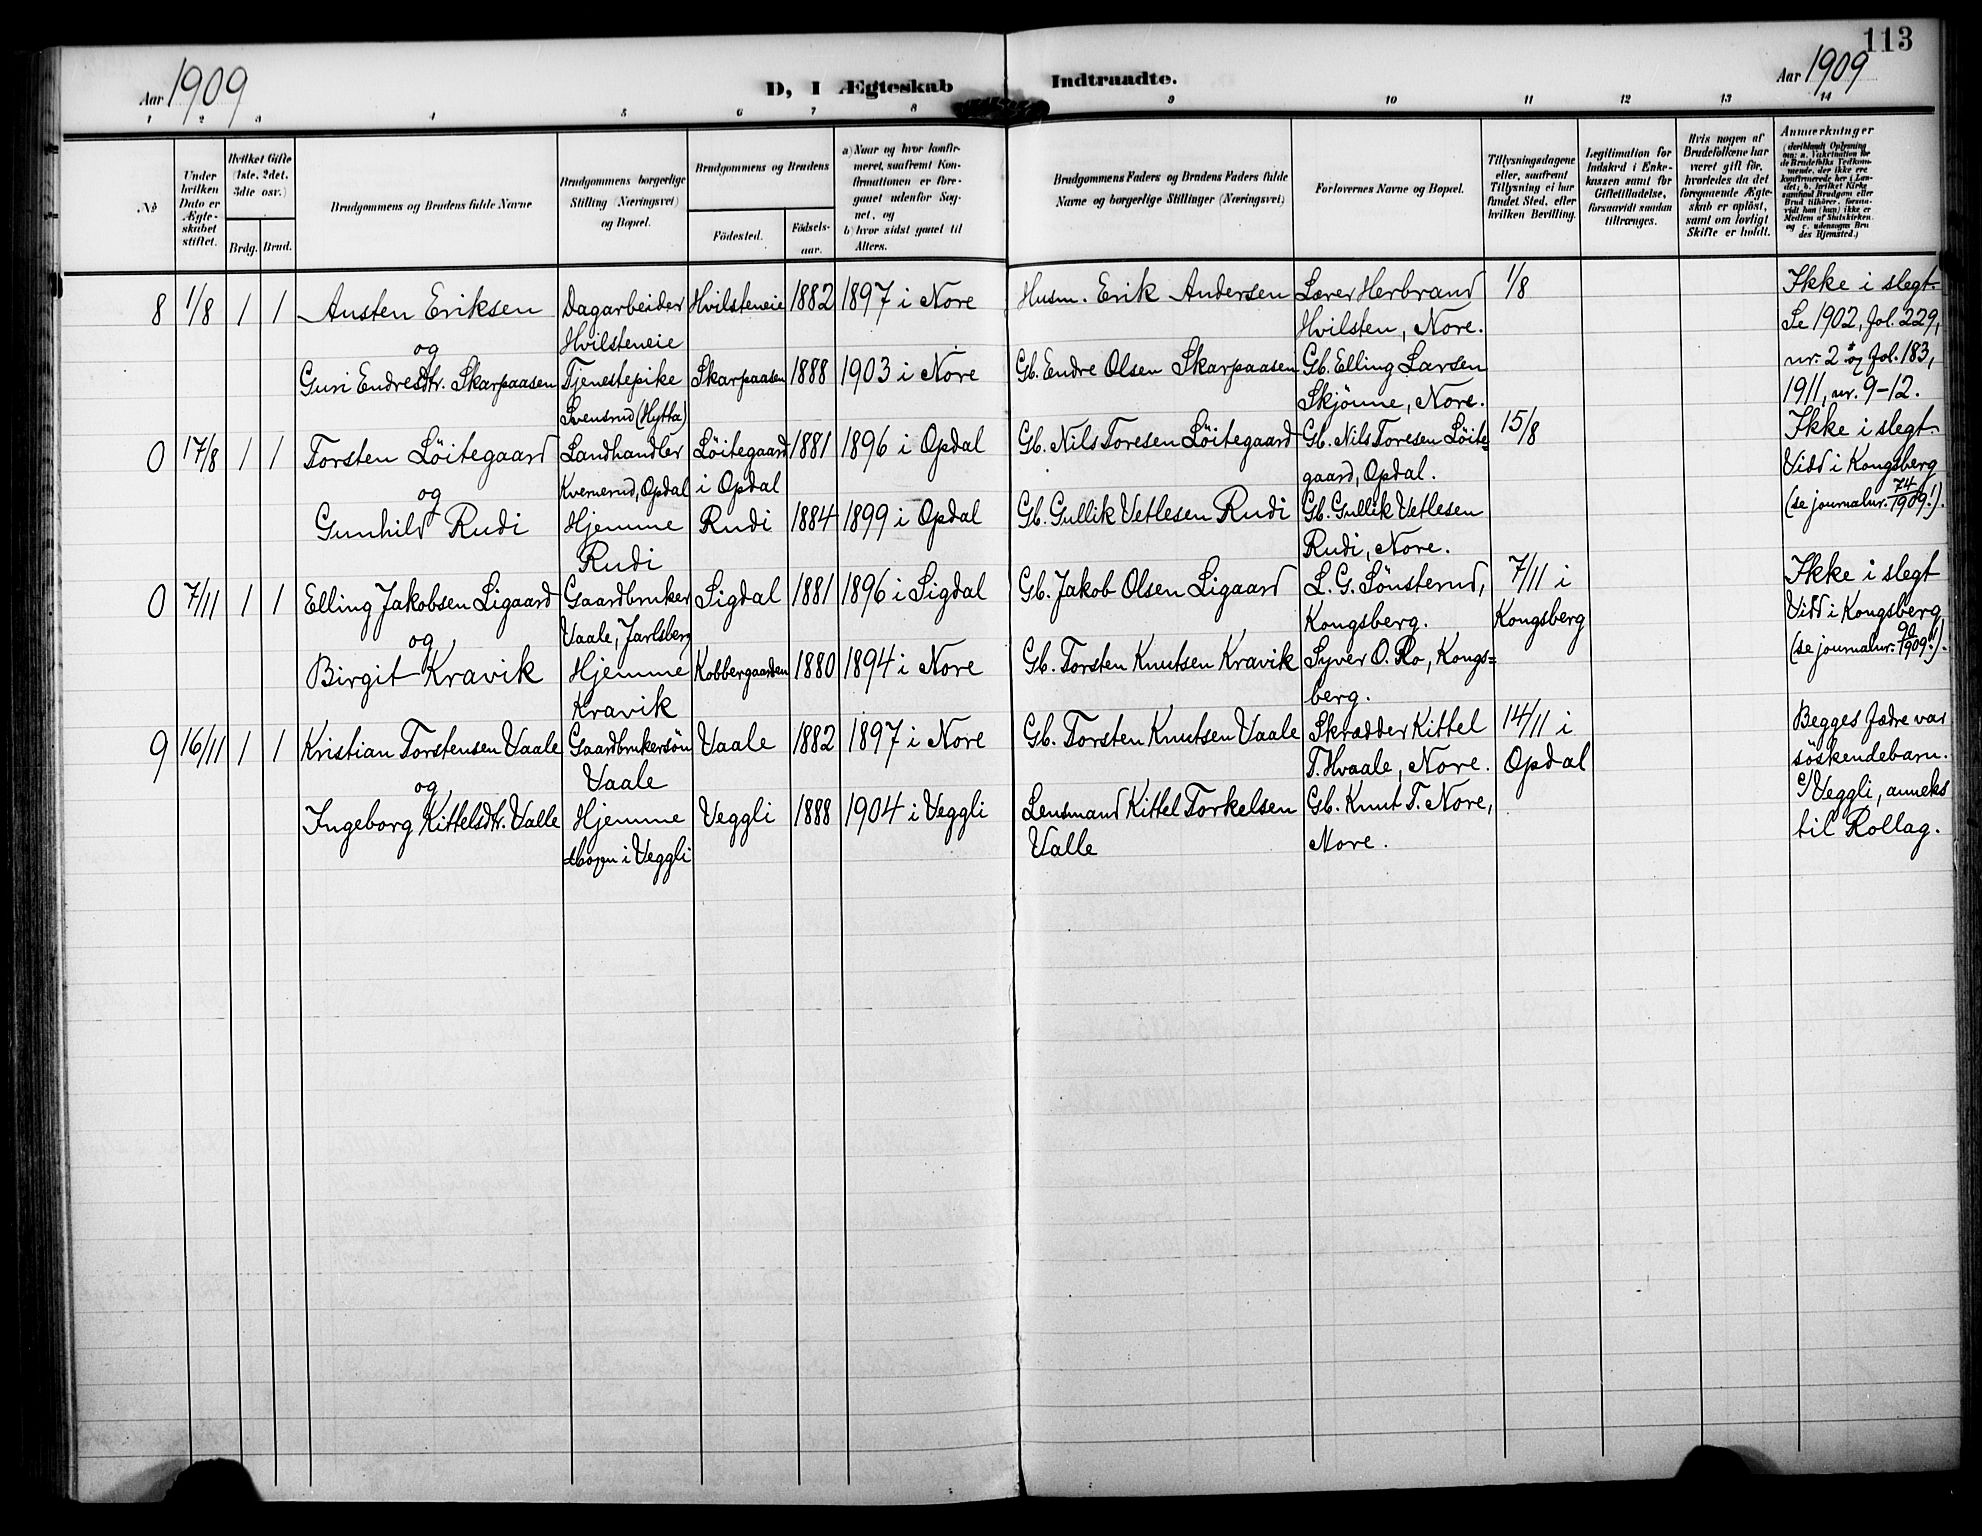 113
Aar 1909
D, I Ægteskab Indtraadte.
Aar 1909
1 2 3 4 5 6 7 8 9 10 11 12 13 14
No
Under hvilken Dato er Ægteskabet stiftet.
Hvilket Gifte (1ste, 2det, 3die osv.)
Brdg. Brud.
Brudgommens og Brudens fulde Navne
Brudgommens borgerlige Stilling (Næringsvei) og Bopæl.
Brudgommens og Brudens
Födested.
Födselsaar.
a) Naar og hvor konfirmeret, saafremt Konfirmationen er foregaaet udenfor Sognet, og
b) hvor sidst gaaet til Alters.
Brudgommens Faders og Brudens Faders fulde Navne og borgerlige Stillinger (Næringsvei)
Forlovernes Navne og Bopæl.
Tillysningsdagene eller, saafremt Tillysning ei har fundet Sted, efter hvilken Bevilling.
Legitimation for Indskud i Enkekassen samt for Giftetilladelse, forsaavidt saadan tiltrænges.
Hvis nogen af Brudefolkene har været gift för, hvorledes da det foregaaende Ægteskab er oplöst, samt om lovligt Skifte er holdt.
Anmerkninger
(deriblandt Oplysning om: a. Vakcination for de Brudefolks Vedkommende, der ikke ere konfirmerede her i Landet; b. hvilket Kirkesamfund Brudgom eller Brud tilhörer, forsaavidt han (hun) ikke er Medlem af Statskirken, og c. udensogns Brudes Hjemsted.)
8 1/8 1 1 Austen Eriksen Dagarbeider Hvilsteneie 1882 1897 i Nore Husm. Erik Andersen Lærer Herbrand 1/8 Ikke i slegt.
og Hvilsteneie Hvilsten, Nore. Se 1902, fol. 229,
Guri Endresdtr. Skarpaasen Tjenestepike Skarpaasen 1888 1903 i Nore Gb. Endre Olsen Skarpaasen Gb. Elling Larsen nr. 2 og fol. 183,
Svensrud (Hytta) Skjönne, Nore. 1911, nr. 9-12.
0 17/8 1 1 Torsten Löitegaard Landhandler Löitegaard 1881 1896 i Opdal Gb. Nils Toresen Löitegaard Gb. Nils Toresen Löite= 15/8 Ikke i slegt.
og Kvernerud, Opdal i Opdal gaard, Opdal. Vidd i Kongsberg
Gunhild Rudi Hjemme Rudi 1884 1899 i Opdal Gb. Gullik Vetlesen Rudi Gb. Gullik Vetlesen (se journalnr. 74/1909!).
Rudi Rudi, Nore.
0 7/11 1 1 Elling Jakobsen Ligaard Gaardbruker Sigdal 1881 1896 i Sigdal Gb. Jakob Olsen Ligaard L. G. Sönsterud, 7/11 i Ikke i slegt
og Vaale, Jarlsberg Kongsberg. Kongsberg Vidd i Kongsberg
Birgit Kravik Hjemme Kobbergaarden 1880 1894 i Nore Gb. Torsten Knutsen Kravik Syver O. Ro, Kongs= (se journalnr. 90/1909!).
Kravik berg.
9 16/11 1 1 Kristian Torstensen Vaale Gaardbrukersön Vaale 1882 1897 i Nore Gb. Torsten Knutsen Vaale Skrædder Kittel 14/11 i Begges fædre var
og Vaale T. Hvaale, Nore. Opdal söskendebarn.
Ingeborg Kittelsdtr. Valle Hjemme Veggli 1888 1904 i Veggli Lensmand Kittel Torkelsen Gb. Knut T. Nore, c/ Veggli, anneks
i Veggli Valle Nore. til Rollag.